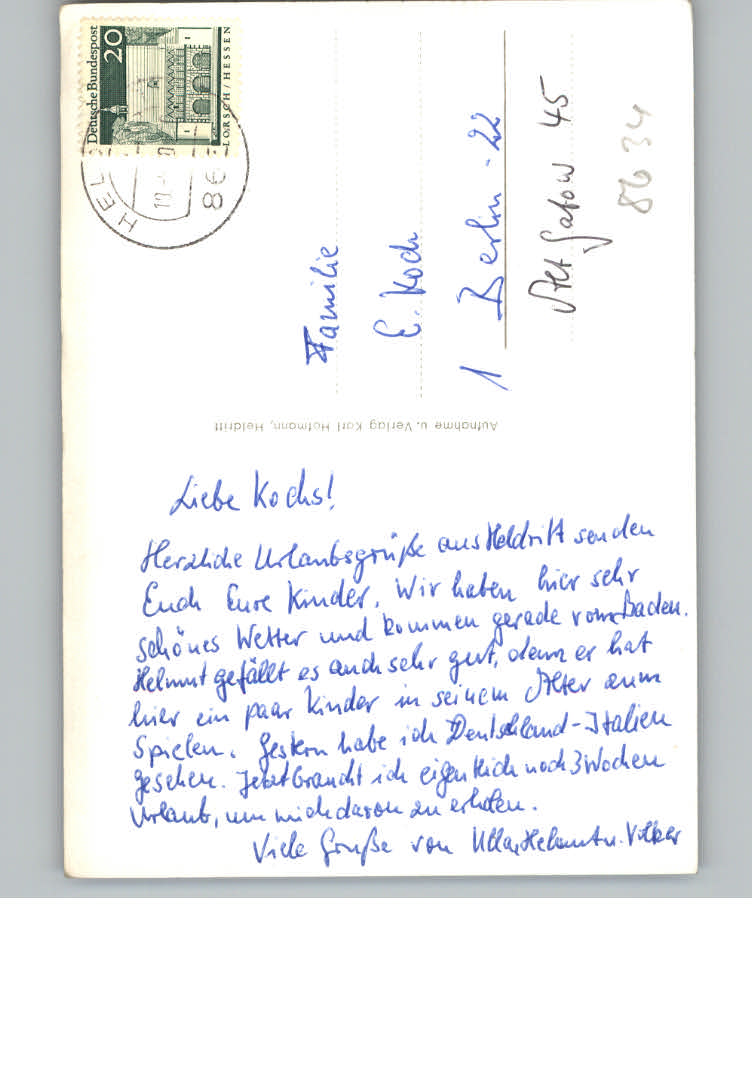 Deutsche Bundespost
20
LORSCH / HESSEN
HEL
10.
86
Familie
E. Koch
1 Berlin - 22
Alt Gatow 45
8634
Aufnahme u. Verlag Karl Hofmann, Heldritt
Liebe Kochs!
Herzliche Urlaubsgrüße aus Heldritt senden
Euch Eure Kinder. Wir haben hier sehr
schönes Wetter und kommen gerade vom Baden.
Helmut gefällt es auch sehr gut, denn er hat
hier ein paar Kinder in seinem Alter zum
Spielen. Gestern habe ich Deutschland-Italien
gesehen. Jetzt braucht ich eigentlich noch 3 Wochen
Urlaub, um mich davon zu erholen.
Viele Grüße von Ulla, Helmut u. Volker